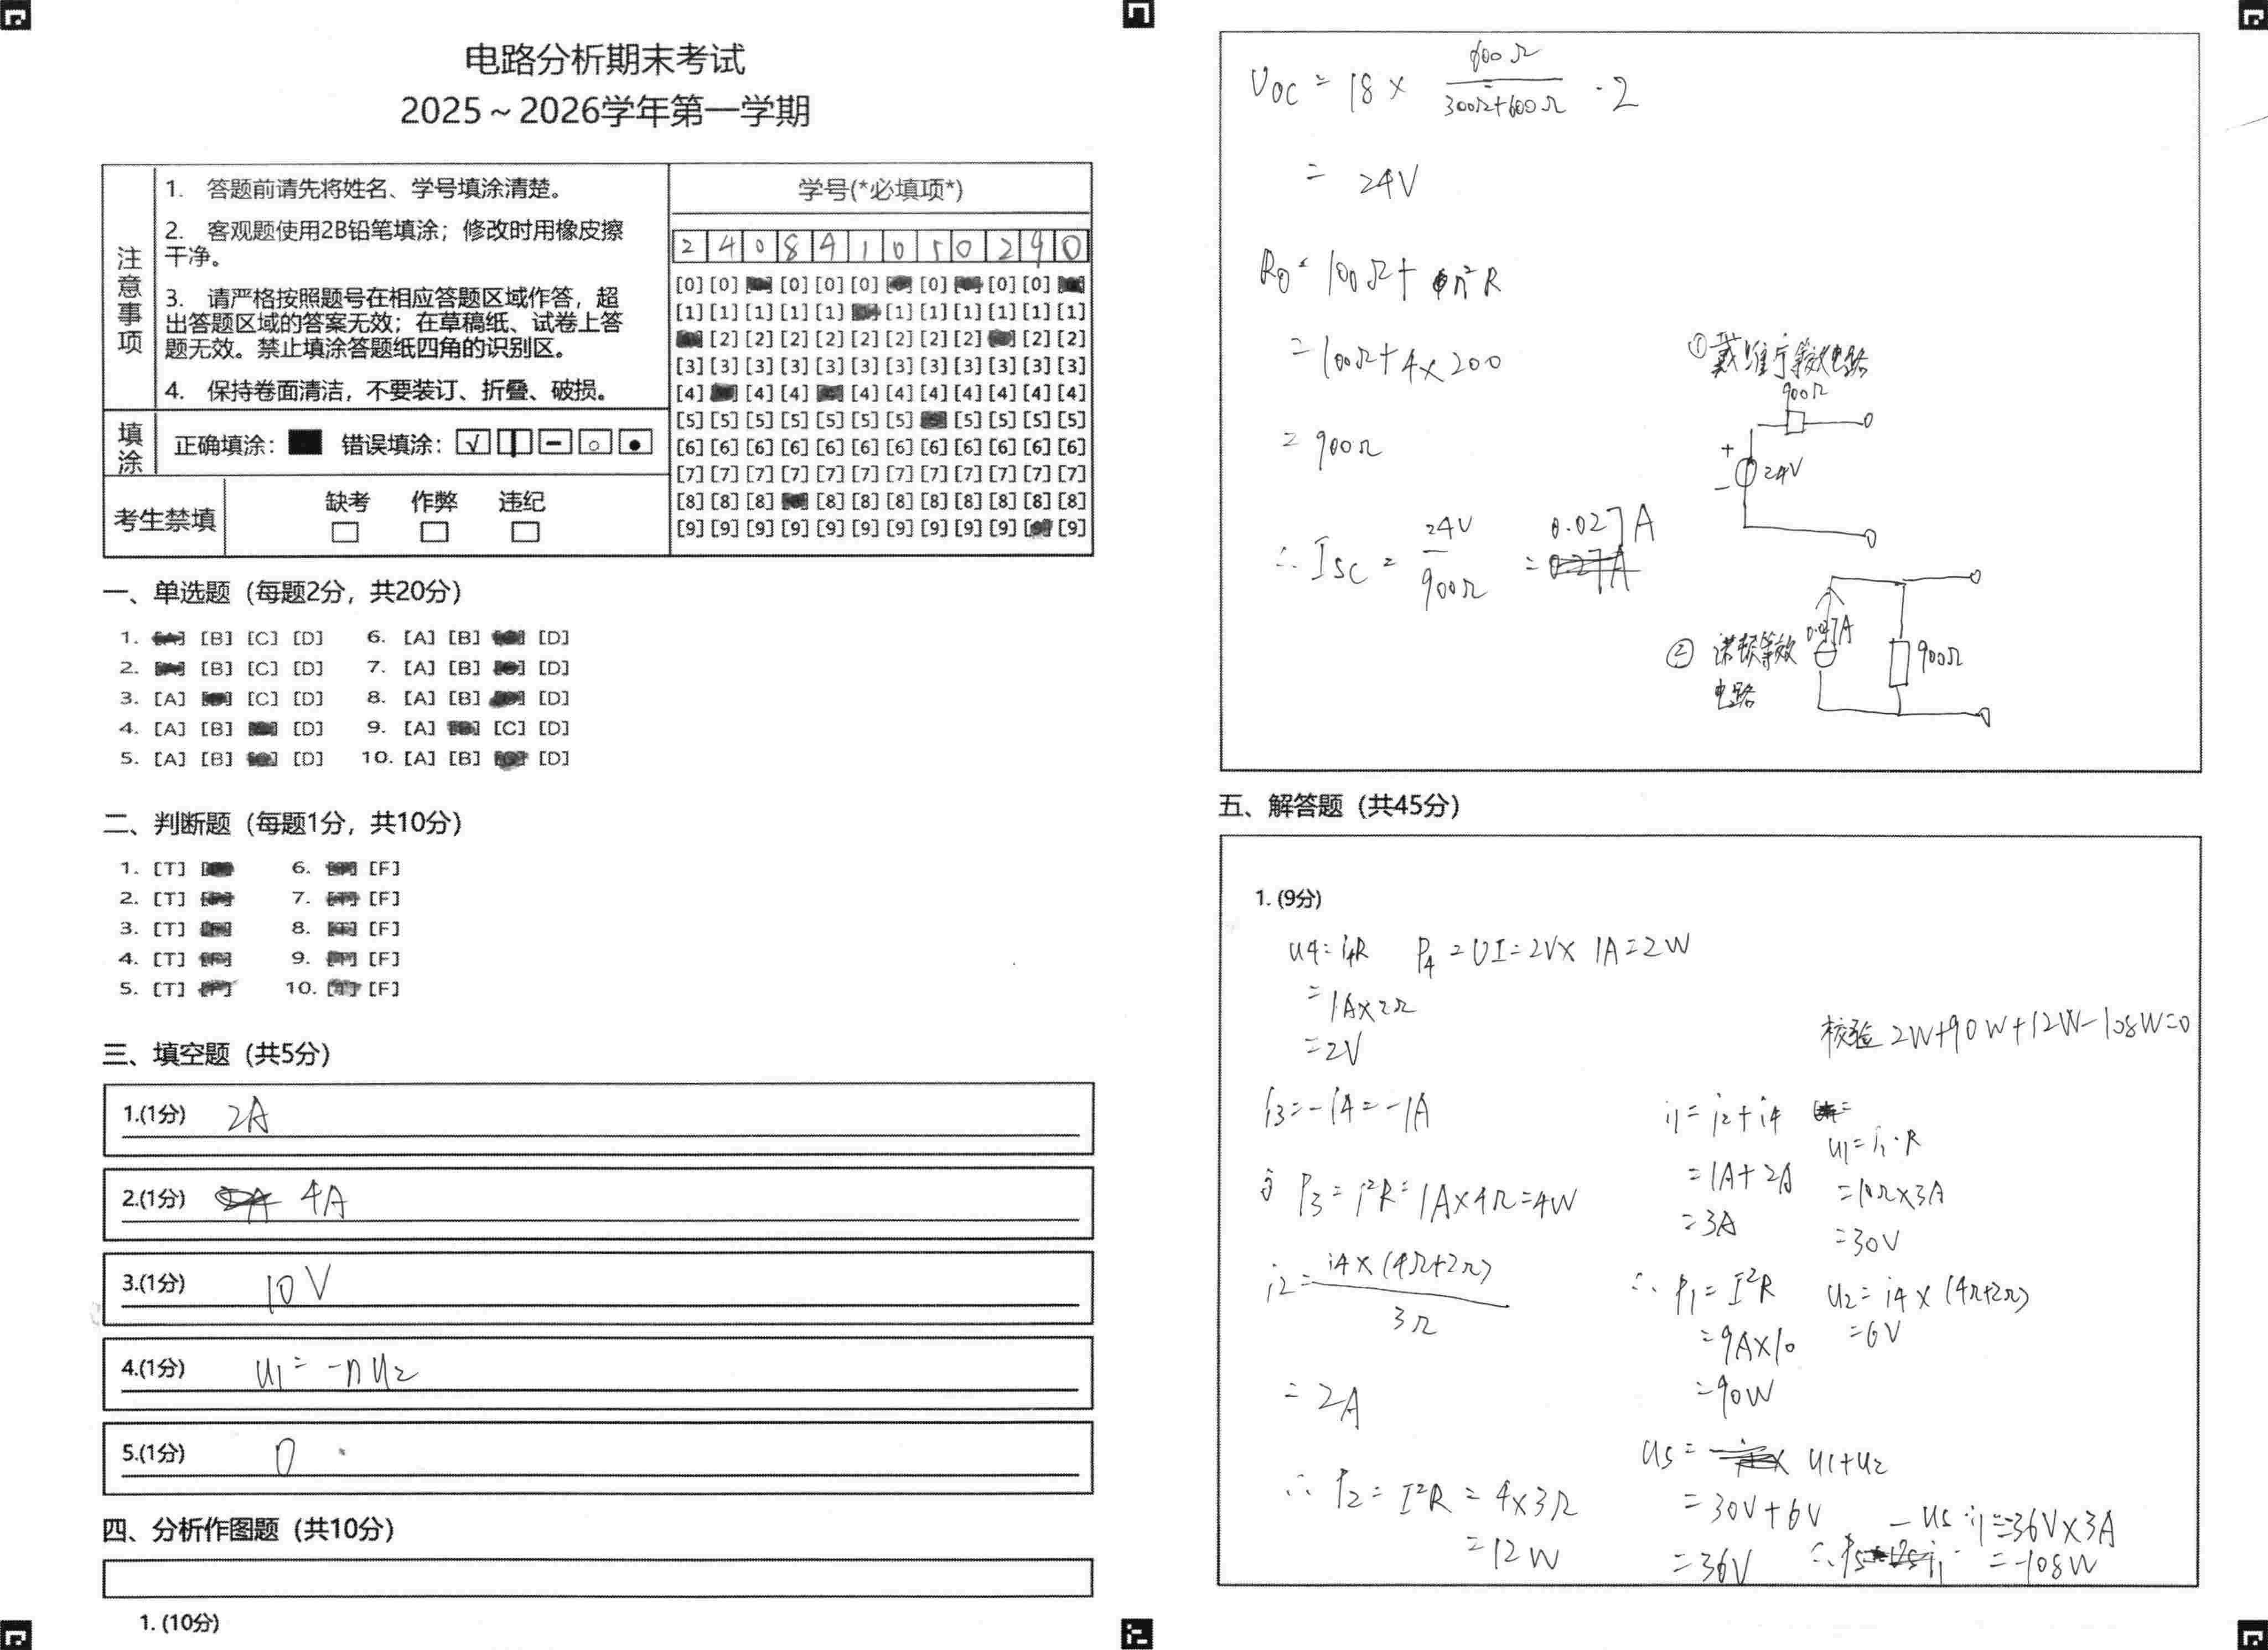 电路分析期末考试
2025～2026学年第一学期
注意事项
1. 答题前请先将姓名、学号填涂清楚。
2. 客观题使用2B铅笔填涂；修改时用橡皮擦
干净。
3. 请严格按照题号在相应答题区域作答，超
出答题区域的答案无效；在草稿纸、试卷上答
题无效。禁止填涂答题纸四角的识别区。
4. 保持卷面清洁，不要装订、折叠、破损。
填涂
正确填涂： 错误填涂：
考生禁填
缺考 作弊 违纪
学号(*必填项*)
2 4 0 8 4 1 0 5 0 2 9 0
[0] [0] [0] [0] [0] [0] [0] [0]
[1] [1] [1] [1] [1] [1] [1] [1] [1] [1] [1]
[2] [2] [2] [2] [2] [2] [2] [2] [2] [2]
[3] [3] [3] [3] [3] [3] [3] [3] [3] [3] [3] [3]
[4] [4] [4] [4] [4] [4] [4] [4] [4] [4]
[5] [5] [5] [5] [5] [5] [5] [5] [5] [5] [5]
[6] [6] [6] [6] [6] [6] [6] [6] [6] [6] [6] [6]
[7] [7] [7] [7] [7] [7] [7] [7] [7] [7] [7] [7]
[8] [8] [8] [8] [8] [8] [8] [8] [8] [8] [8]
[9] [9] [9] [9] [9] [9] [9] [9] [9] [9] [9]
一、单选题（每题2分，共20分）
1. [B] [C] [D] 6. [A] [B] [D]
2. [B] [C] [D] 7. [A] [B] [D]
3. [A] [C] [D] 8. [A] [B] [D]
4. [A] [B] [D] 9. [A] [C] [D]
5. [A] [B] [D] 10. [A] [B] [D]
二、判断题（每题1分，共10分）
1. [T] 6. [F]
2. [T] 7. [F]
3. [T] 8. [F]
4. [T] 9. [F]
5. [T] 10. [F]
三、填空题（共5分）
1.(1分) 2A
2.(1分) 4A
3.(1分) 10V
4.(1分) u1= -nu2
5.(1分) 0
四、分析作图题（共10分）
1. (10分)
UOC = 18 × 600Ω/(300Ω+600Ω) · 2
= 24V
R0 = 100Ω + n²R
= 100Ω+4×200
= 900Ω
∴ ISC = 24V/900Ω = 0.027A
①戴维宁等效电路
900Ω
+
24V
-
②诺顿等效
电路
0.027A
900Ω
五、解答题（共45分）
1. (9分)
u4= i4R P4 = UI=2V× 1A=2W
= 1A×2Ω
=2V
校验 2W+90W+12W-108W=0
i3=-i4=-1A
P3= i²R= 1A×4Ω=4W
i2= i4×(4Ω+2Ω)/3Ω
= 2A
∴ P2= I²R = 4×3Ω
=12W
i1= i2+i4
=1A+2A
=3A
u1= i1·R
=10Ω×3A
=30V
∴ P1= I²R
=9A×10
=90W
u2= i4×(4Ω+2Ω)
=6V
us= u1+u2
=30V+6V
=36V
∴Ps= -us·i1=-36V×3A
=-108W